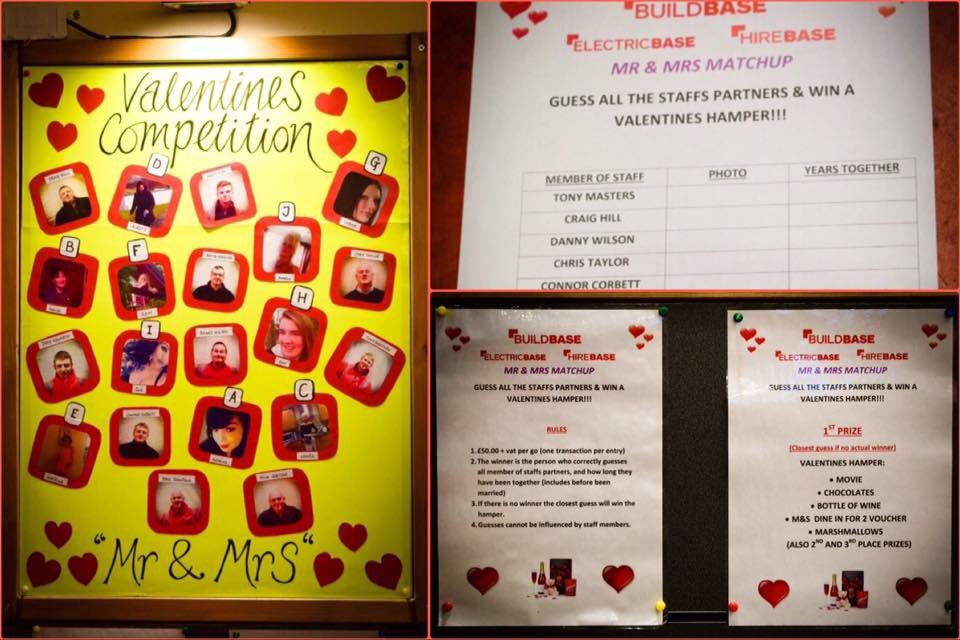 Valentines
Competition
D
G
J
B
F
H
I
E
A
C
"Mr & Mrs"
BUILDBASE
ELECTRICBASE HIREBASE
MR & MRS MATCHUP
GUESS ALL THE STAFFS PARTNERS & WIN A
VALENTINES HAMPER!!!
MEMBER OF STAFF PHOTO YEARS TOGETHER
TONY MASTERS
CRAIG HILL
DANNY WILSON
CHRIS TAYLOR
CONNOR CORBETT
BUILDBASE
ELECTRICBASE HIREBASE
MR & MRS MATCHUP
GUESS ALL THE STAFFS PARTNERS & WIN A
VALENTINES HAMPER!!!
RULES
1. £50.00 + vat per go (one transaction per entry)
2. The winner is the person who correctly guesses
all member of staffs partners, and how long they
have been together (includes before been
married)
3. If there is no winner the closest guess will win the
hamper.
4. Guesses cannot be influenced by staff members.
BUILDBASE
ELECTRICBASE HIREBASE
MR & MRS MATCHUP
GUESS ALL THE STAFFS PARTNERS & WIN A
VALENTINES HAMPER!!!
1ST PRIZE
(Closest guess if no actual winner)
VALENTINES HAMPER:
• MOVIE
• CHOCOLATES
• BOTTLE OF WINE
• M&S DINE IN FOR 2 VOUCHER
• MARSHMALLOWS
(ALSO 2ND AND 3RD PLACE PRIZES)